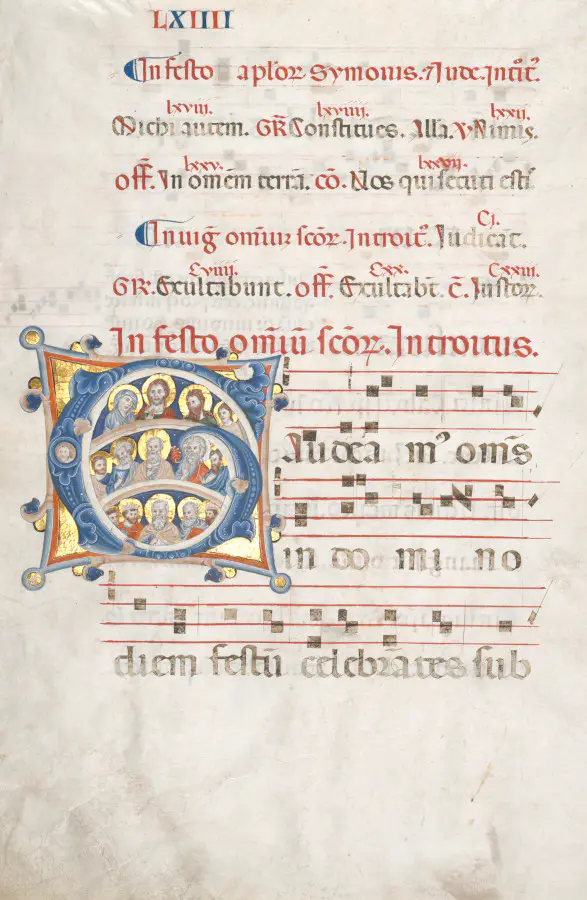 LXIIII
In festo aplor Symonis. 7 Iude. Introit.
lxviii. lxviiii. lxxii.
Michi autem. GR Constitues. Alla. V Nimis.
lxxv. lxxvii.
off. In omem terra. co. Vos qui secuti esti
CI.
In uig omium scor. Introit. Iudicat.
Cviiii. Cxx. Cxxiii.
GR. Exultabunt. off. Exultabt. C. Iustor.
In festo omium scor. Introitus.
Gaudea m' oms
in do mi no
diem festu celebrates sub